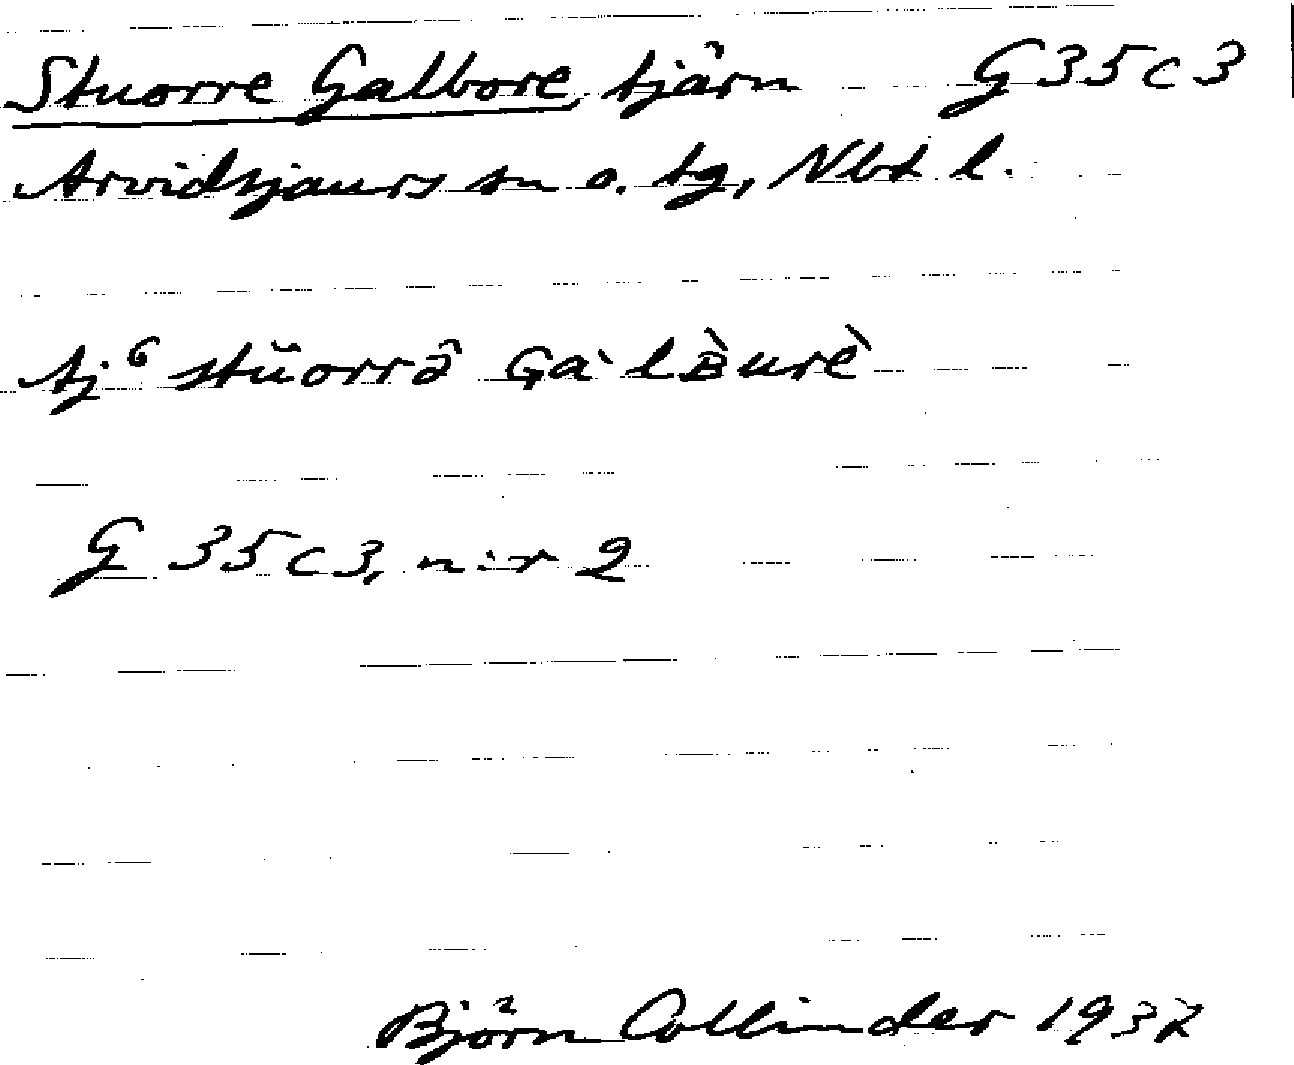 Stuorre Galbore, tjärn G 35 c 3
Arvidsjaurs sn o. tg, Nbt l.
tj⁶ stŭorrâ Gàlʙ̀urè
G 35 c 3, n:r 2
Björn Collinder 1937